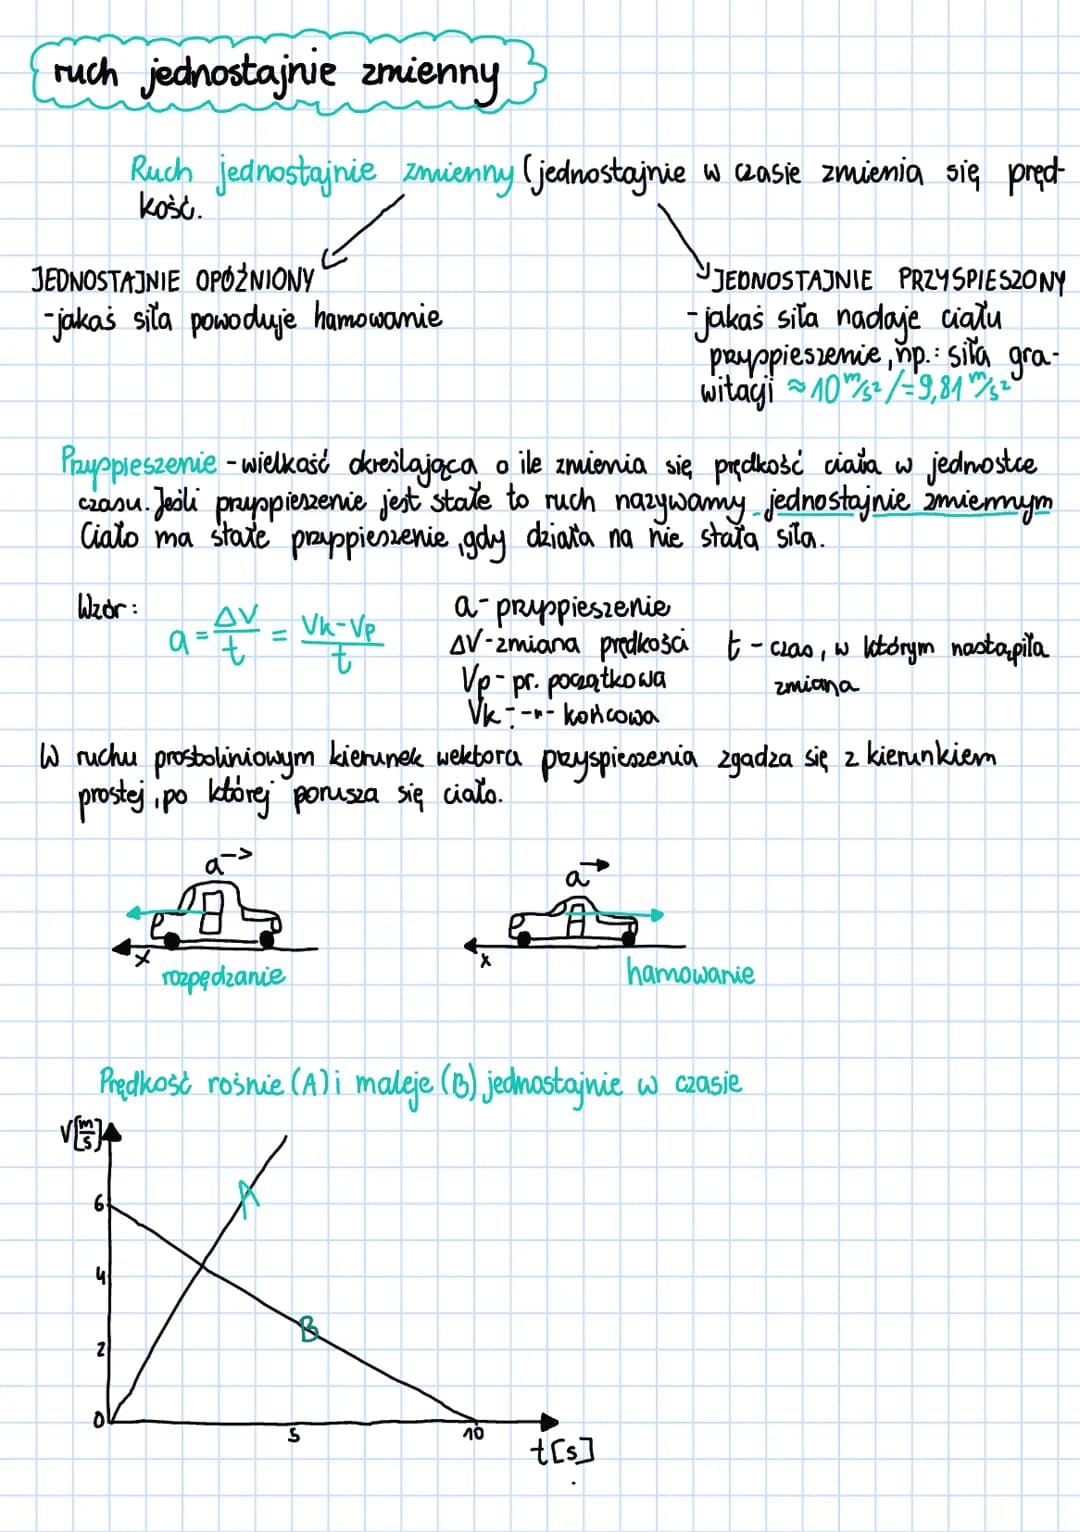 ruch jednostajnie zmienny
Ruch jednostajnie zmienny (jednostajnie w czasie zmienia się pręd-
kość.
JEDNOSTAJNIE OPÓŹNIONY
-jakaś siła powoduje hamowanie
JEDNOSTAJNIE PRZYSPIESZONY
-jakaś siła nadaje ciału
przyspieszenie, np.: siła gra-
witacji ≈10 m/s² /=9,81 m/s²
Przyspieszenie - wielkość określająca o ile zmienia się prędkość ciała w jednostce
czasu. Jeśli przyspieszenie jest stałe to ruch nazywamy jednostajnie zmiennym
Ciało ma stałe przyspieszenie, gdy działa na nie stała siła.
Wzór:
a = ΔV/t = Vk-Vp/t
a- przyspieszenie
ΔV-zmiana prędkości
Vp- pr. początkowa
Vk- -"- końcowa
t - czas, w którym nastąpiła
zmiana
W ruchu prostoliniowym kierunek wektora przyspieszenia zgadza się z kierunkiem
prostej, po której porusza się ciało.
a->
x
rozpędzanie
a→
x
hamowanie
Prędkość rośnie (A) i maleje (B) jednostajnie w czasie
V[m/s]
6
A
4
B
2
0
5
10
t[s]